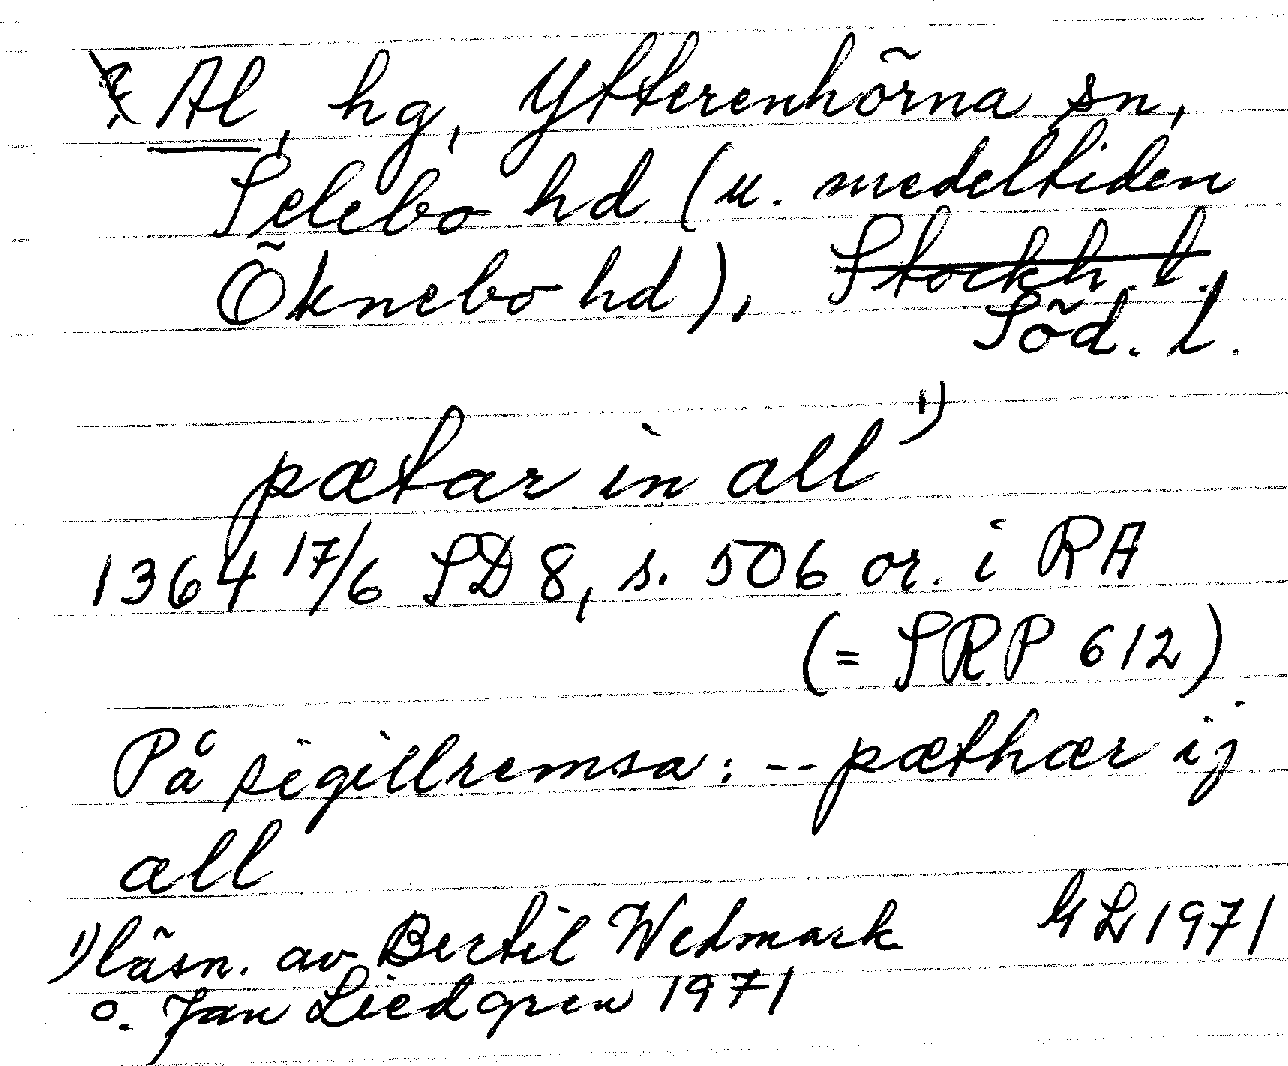 Al, hg, Ytterenhörna sn,
Selebo hd (u. medeltiden
Öknebo hd), Stockh. l.
Söd. l.
pætar in all 1)
1364 17/6 SD 8, s. 506 or. i RA
(= SRP 612)
På sigillremsa: -- pæthær ij
all
1) läsn. av Bertil Wetmark GL 1971
o. Jan Liedgren 1971